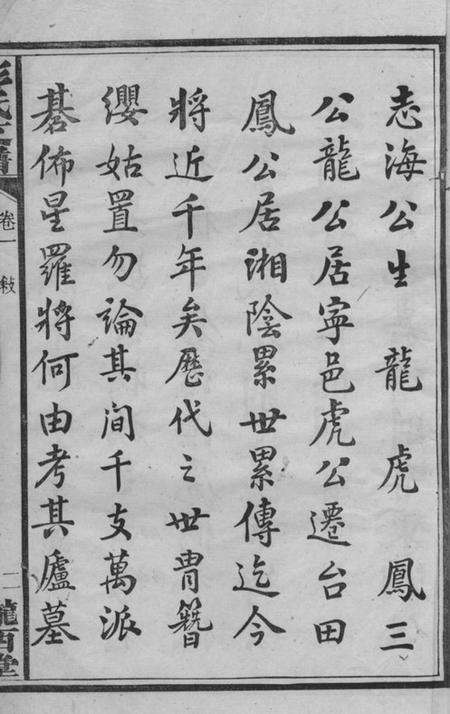 志海公生龍虎鳳三
公龍公居寧邑虎公遷台田
鳳公居湘陰累世累傳迄今
將近千年矣歷代之世冑簪
纓姑置勿論其间千支萬派
碁佈星羅將何由考其廬墓
卷一 敍
二